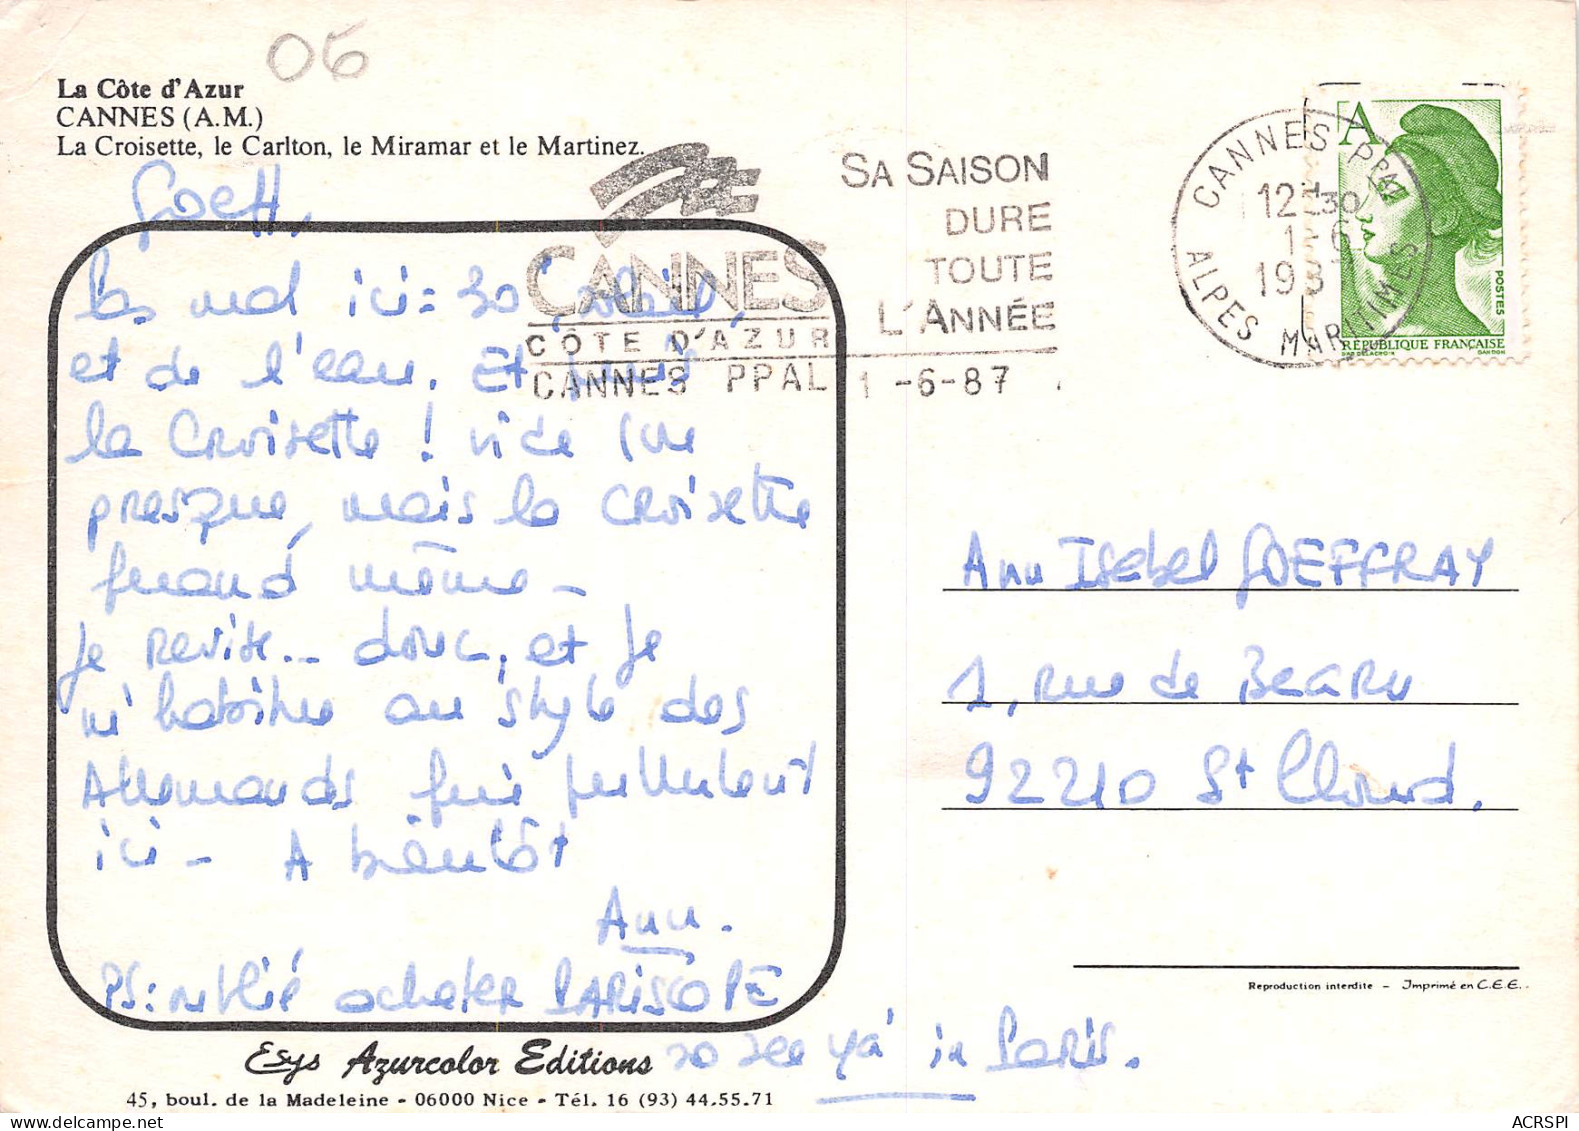 06
La Côte d'Azur
CANNES (A.M.)
La Croisette, le Carlton, le Miramar et le Martinez.
SA SAISON
DURE
TOUTE
L'ANNÉE
CANNES
CÔTE D'AZUR
CANNES PPAL 1 -6-87
CANNES PPAL
12H30
1-6
198
ALPES MARITIMES
A
POSTES
RÉPUBLIQUE FRANÇAISE
D'AP. DELACROIX GANDON
Goeff,
Pas mal ici = 30°, soleil,
et de l'eau. Et puis
la Croisette ! vide (ou
presque, mais la Croisette
quand même -
Je revise... donc, et je
m'habitue au style des
Allemands qui pullulent
ici - A bientôt
Ann.
PS: oublié acheter PARISCOPE
so see ya' in Paris.
Ann Isabel GOEFFRAY
1, rue de Bearn
92210 St Cloud.
Reproduction interdite - Imprimé en C.E.E..
Esys Azurcolor Editions
45, boul. de la Madeleine - 06000 Nice - Tél. 16 (93) 44.55.71
ACRSPI